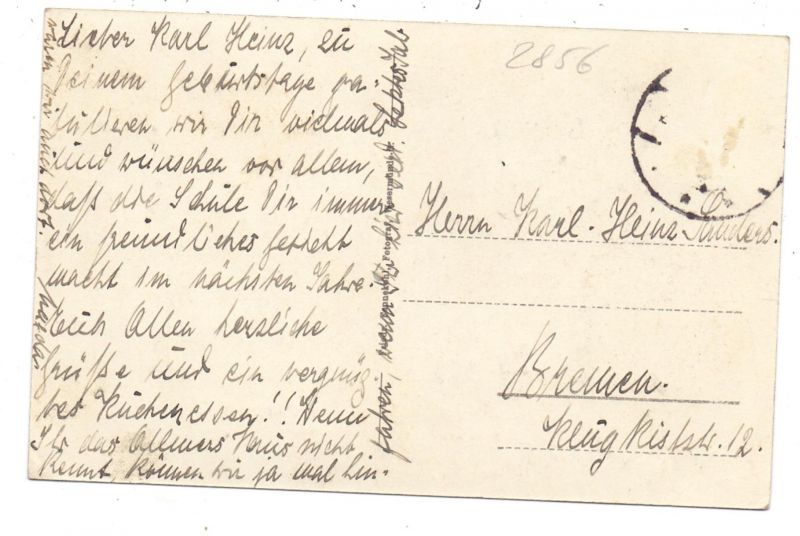 Lieber Karl Heinz, zu
Deinem Geburtstage ga-
tulieren wir Dir vielmals
und wünschen vor allem,
daß die Schule Dir immer
ein freundliches Gesicht
macht im nächsten Jahre.
Euch Allen herzliche
Grüße und ein vergnüg-
tes Kuchenessen!! Wenn
Ihr das Allmers Haus nicht
kennt, können wir ja mal hin-
fahren, wenn Ihr
waren wir auch dort.
2856
Herrn Karl-Heinz Sanders.
Bremen.
Klugkiststr. 12.